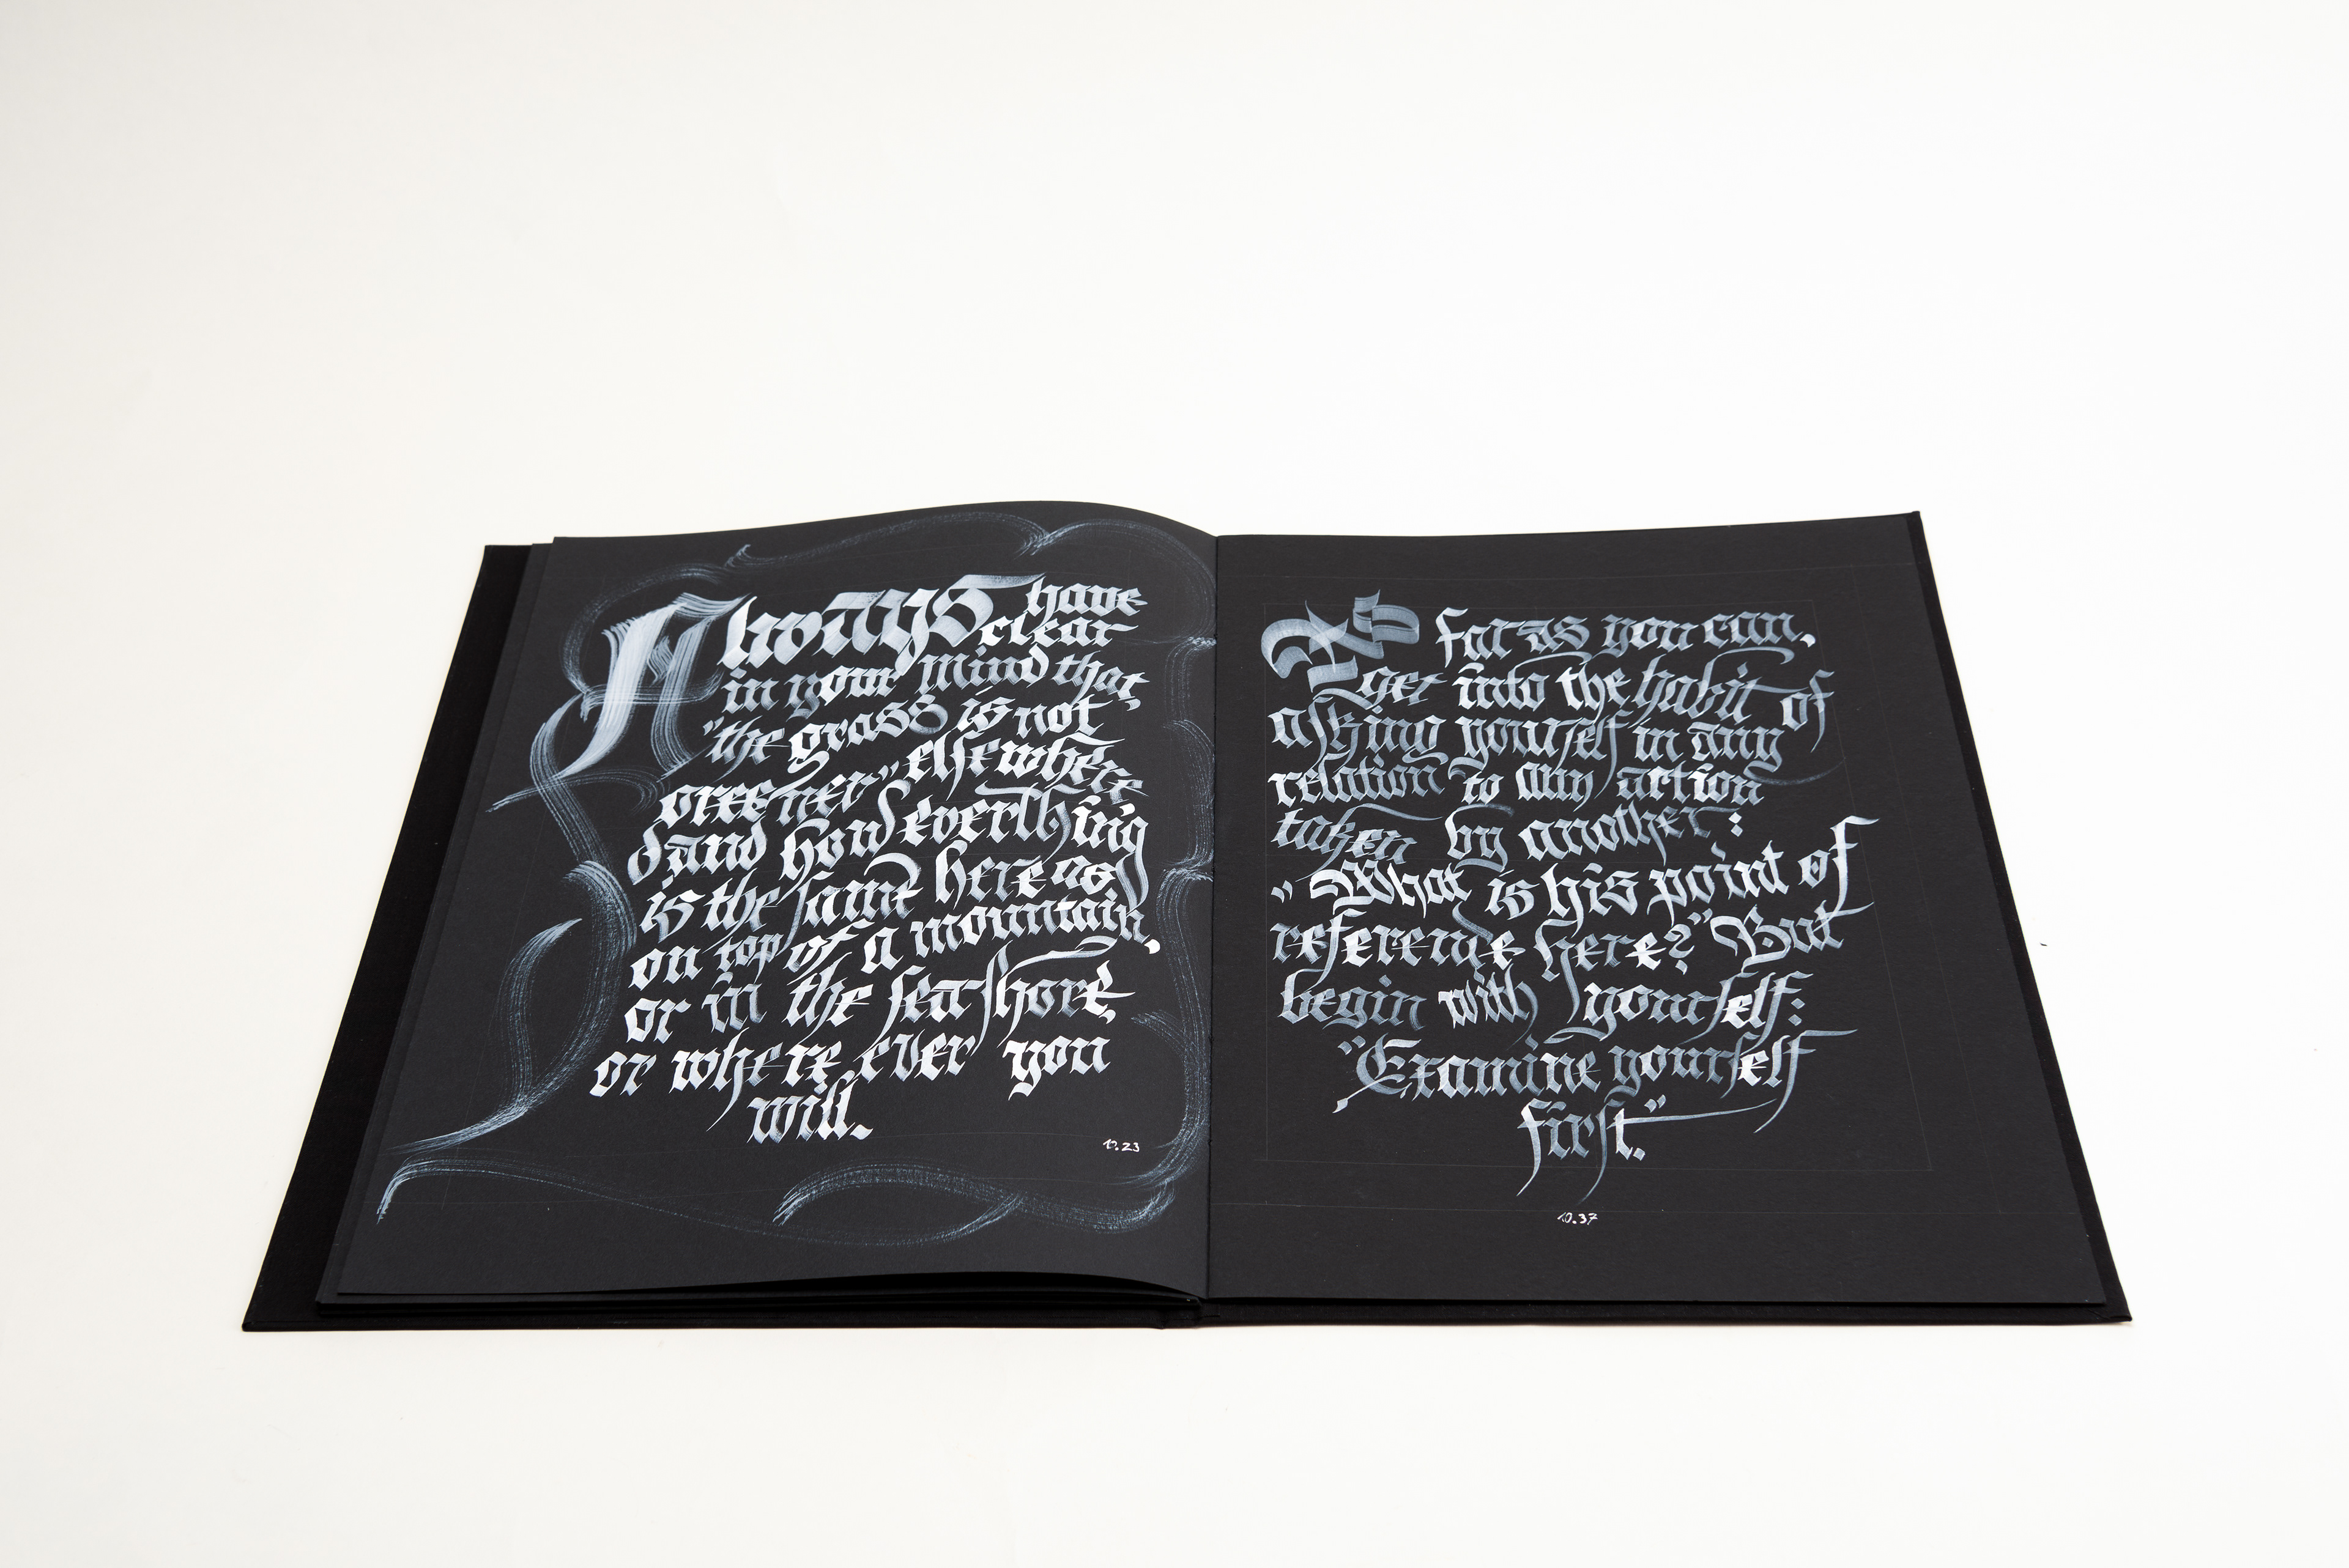 Always have
clear
in your mind that,
"the grass is not
greener" elsewhere
and how everthing
is the same here as
on top of a mountain,
or in the seashore,
or where ever you
will.
10.23
As far as you can,
get into the habit of
asking yourself in any
relation to any action
taken by another:
"What is his point of
reference here?" But
begin with yourself:
"Examine yourself
first."
10.37